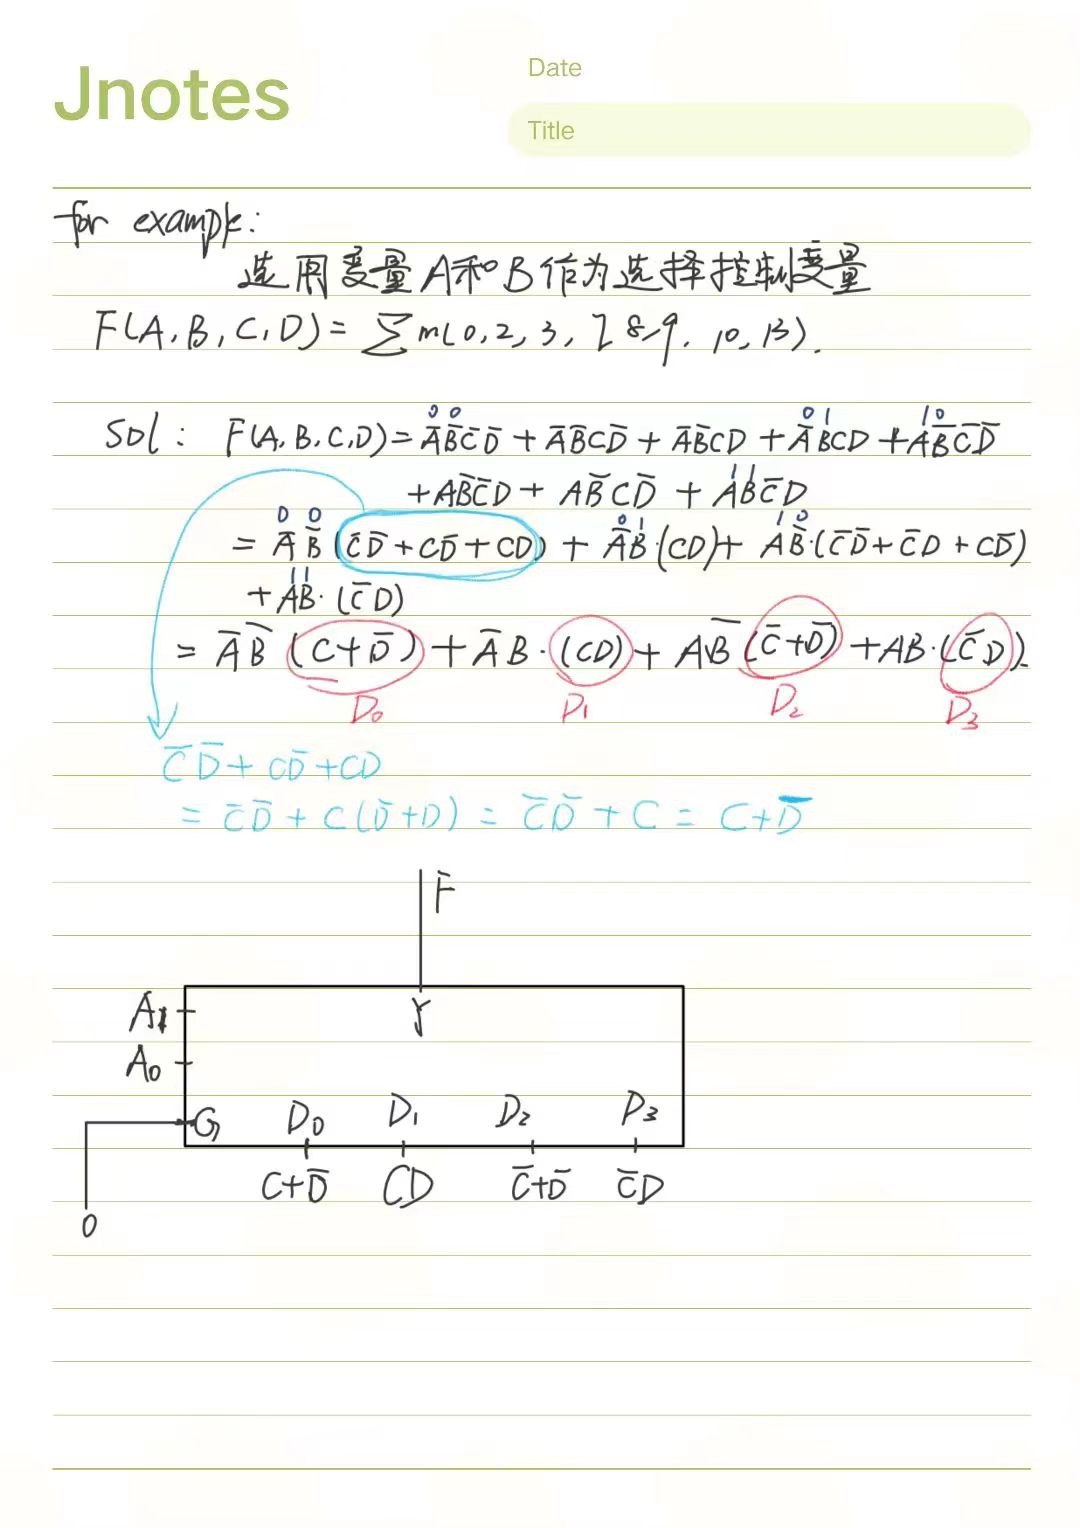 Jnotes
Date
Title
for example:
选用变量A和B作为选择控制变量
F(A,B,C,D)= ∑m(0,2,3,7,8,9,10,13).
Sol: F(A,B,C,D)= A̅B̅C̅D̅ + A̅B̅CD̅ + A̅B̅CD + A̅BCD + AB̅C̅D̅
0 0 0 1 1 0
+AB̅C̅D + AB̅CD̅ + ABC̅D
1 1
= A̅B̅(C̅D̅+CD̅+CD) + A̅B·(CD)+ AB̅·(C̅D̅+C̅D+CD̅)
0 0 0 1 1 0
+AB·(C̅D)
1 1
= A̅B̅(C+D̅)+A̅B·(CD)+AB̅(C̅+D̅)+AB·(C̅D).
D₀ D₁ D₂ D₃
C̅D̅+CD̅+CD
= C̅D̅+C(D̅+D)= C̅D̅+C = C+D̅
F
A₁ Y
A₀
G D₀ D₁ D₂ D₃
C+D̅ CD C̅+D̅ C̅D
0